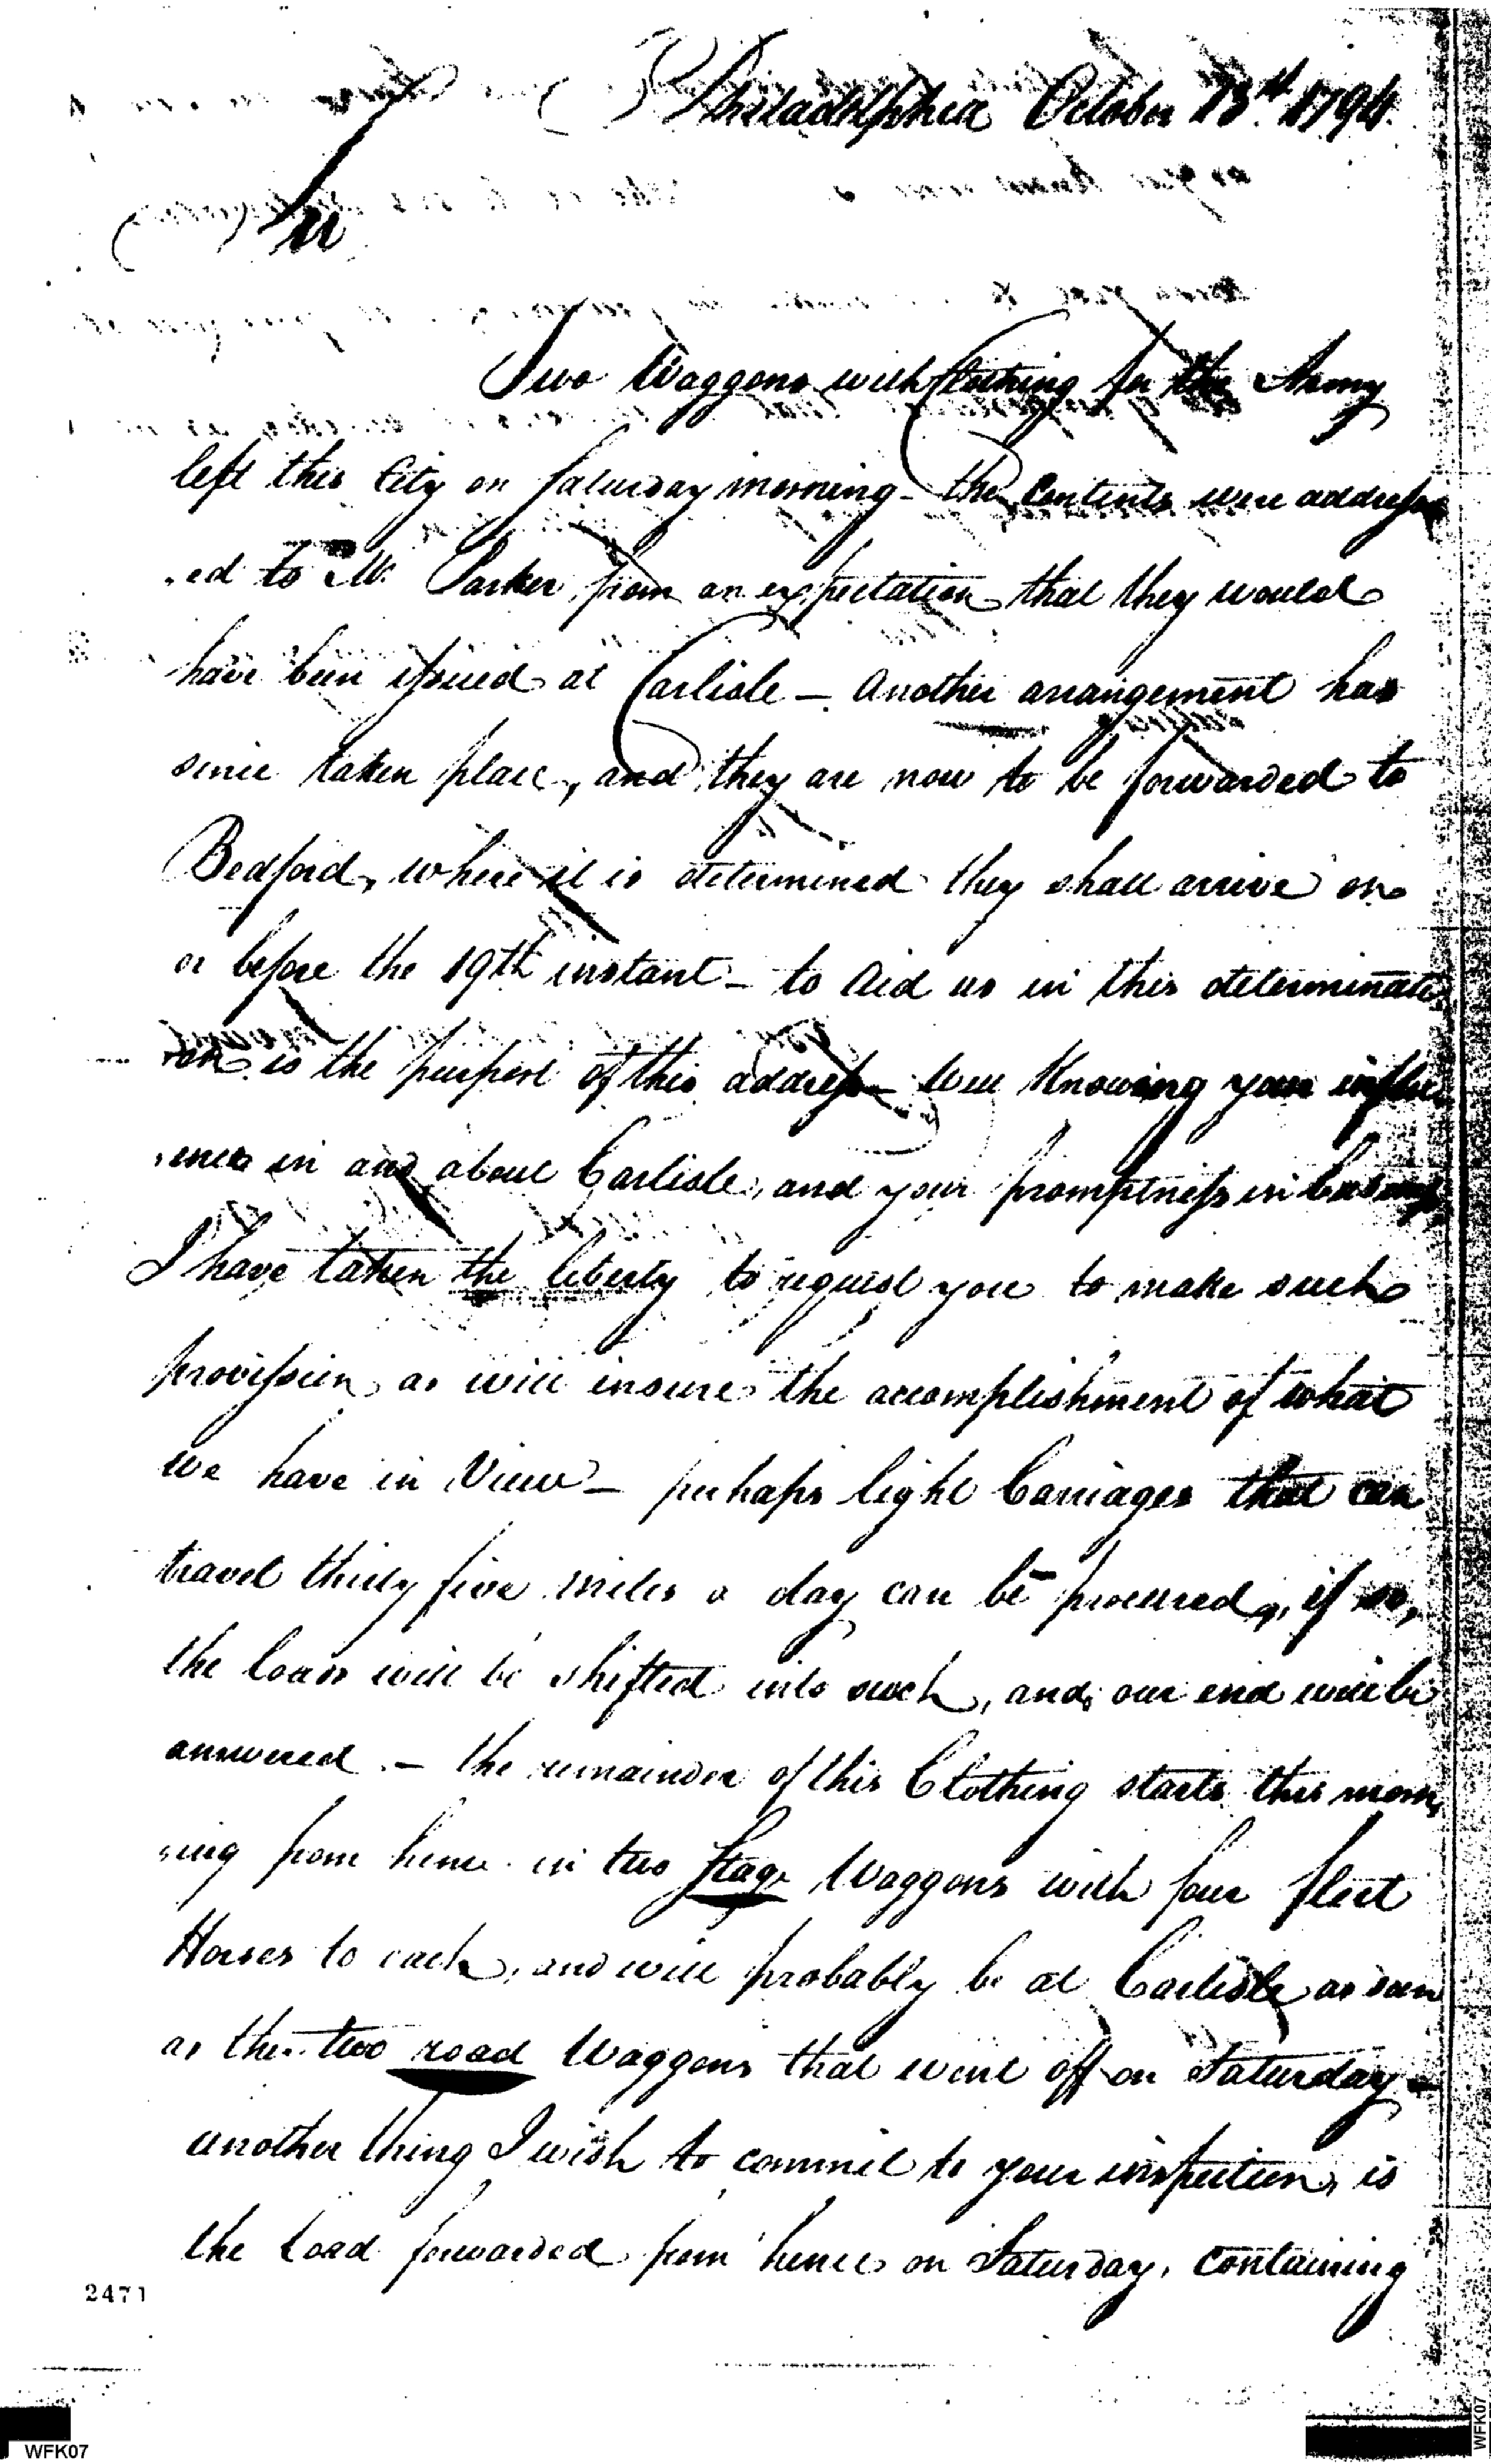 Philadelphia October 13th 1794.
Sir
Two Waggons with Clothing for the Army
left this City on Saturday morning – the Contents were address
ed to Mr. Parker, from an expectation that they would
have been issued at Carlisle – Another arrangement has
since taken place, and they are now to be forwarded to
Bedford, where it is determined they shall arrive on
or before the 19th instant – to Aid us in this determinat
ion is the purport of this address – Well Knowing your influ
ence in and about Carlisle, and your promptness in business
I have taken the liberty to request you to make such
provission, as will insure the accomplishment of what
we have in View – perhaps light Carriages that can
travel thirty five miles a day can be procured, if so,
the loads will be shifted into such, and our end will be
answered. – the remainder of this Clothing starts this morn
ing from hence in two Stage Waggons with four fleet
Horses to each, and will probably be at Carlisle as soon
as the two road Waggons that went off on Saturday –
another thing I wish to commit to your inspection, is
the Load forwarded from hence on Saturday, containing
2471
WFK07
WFK07